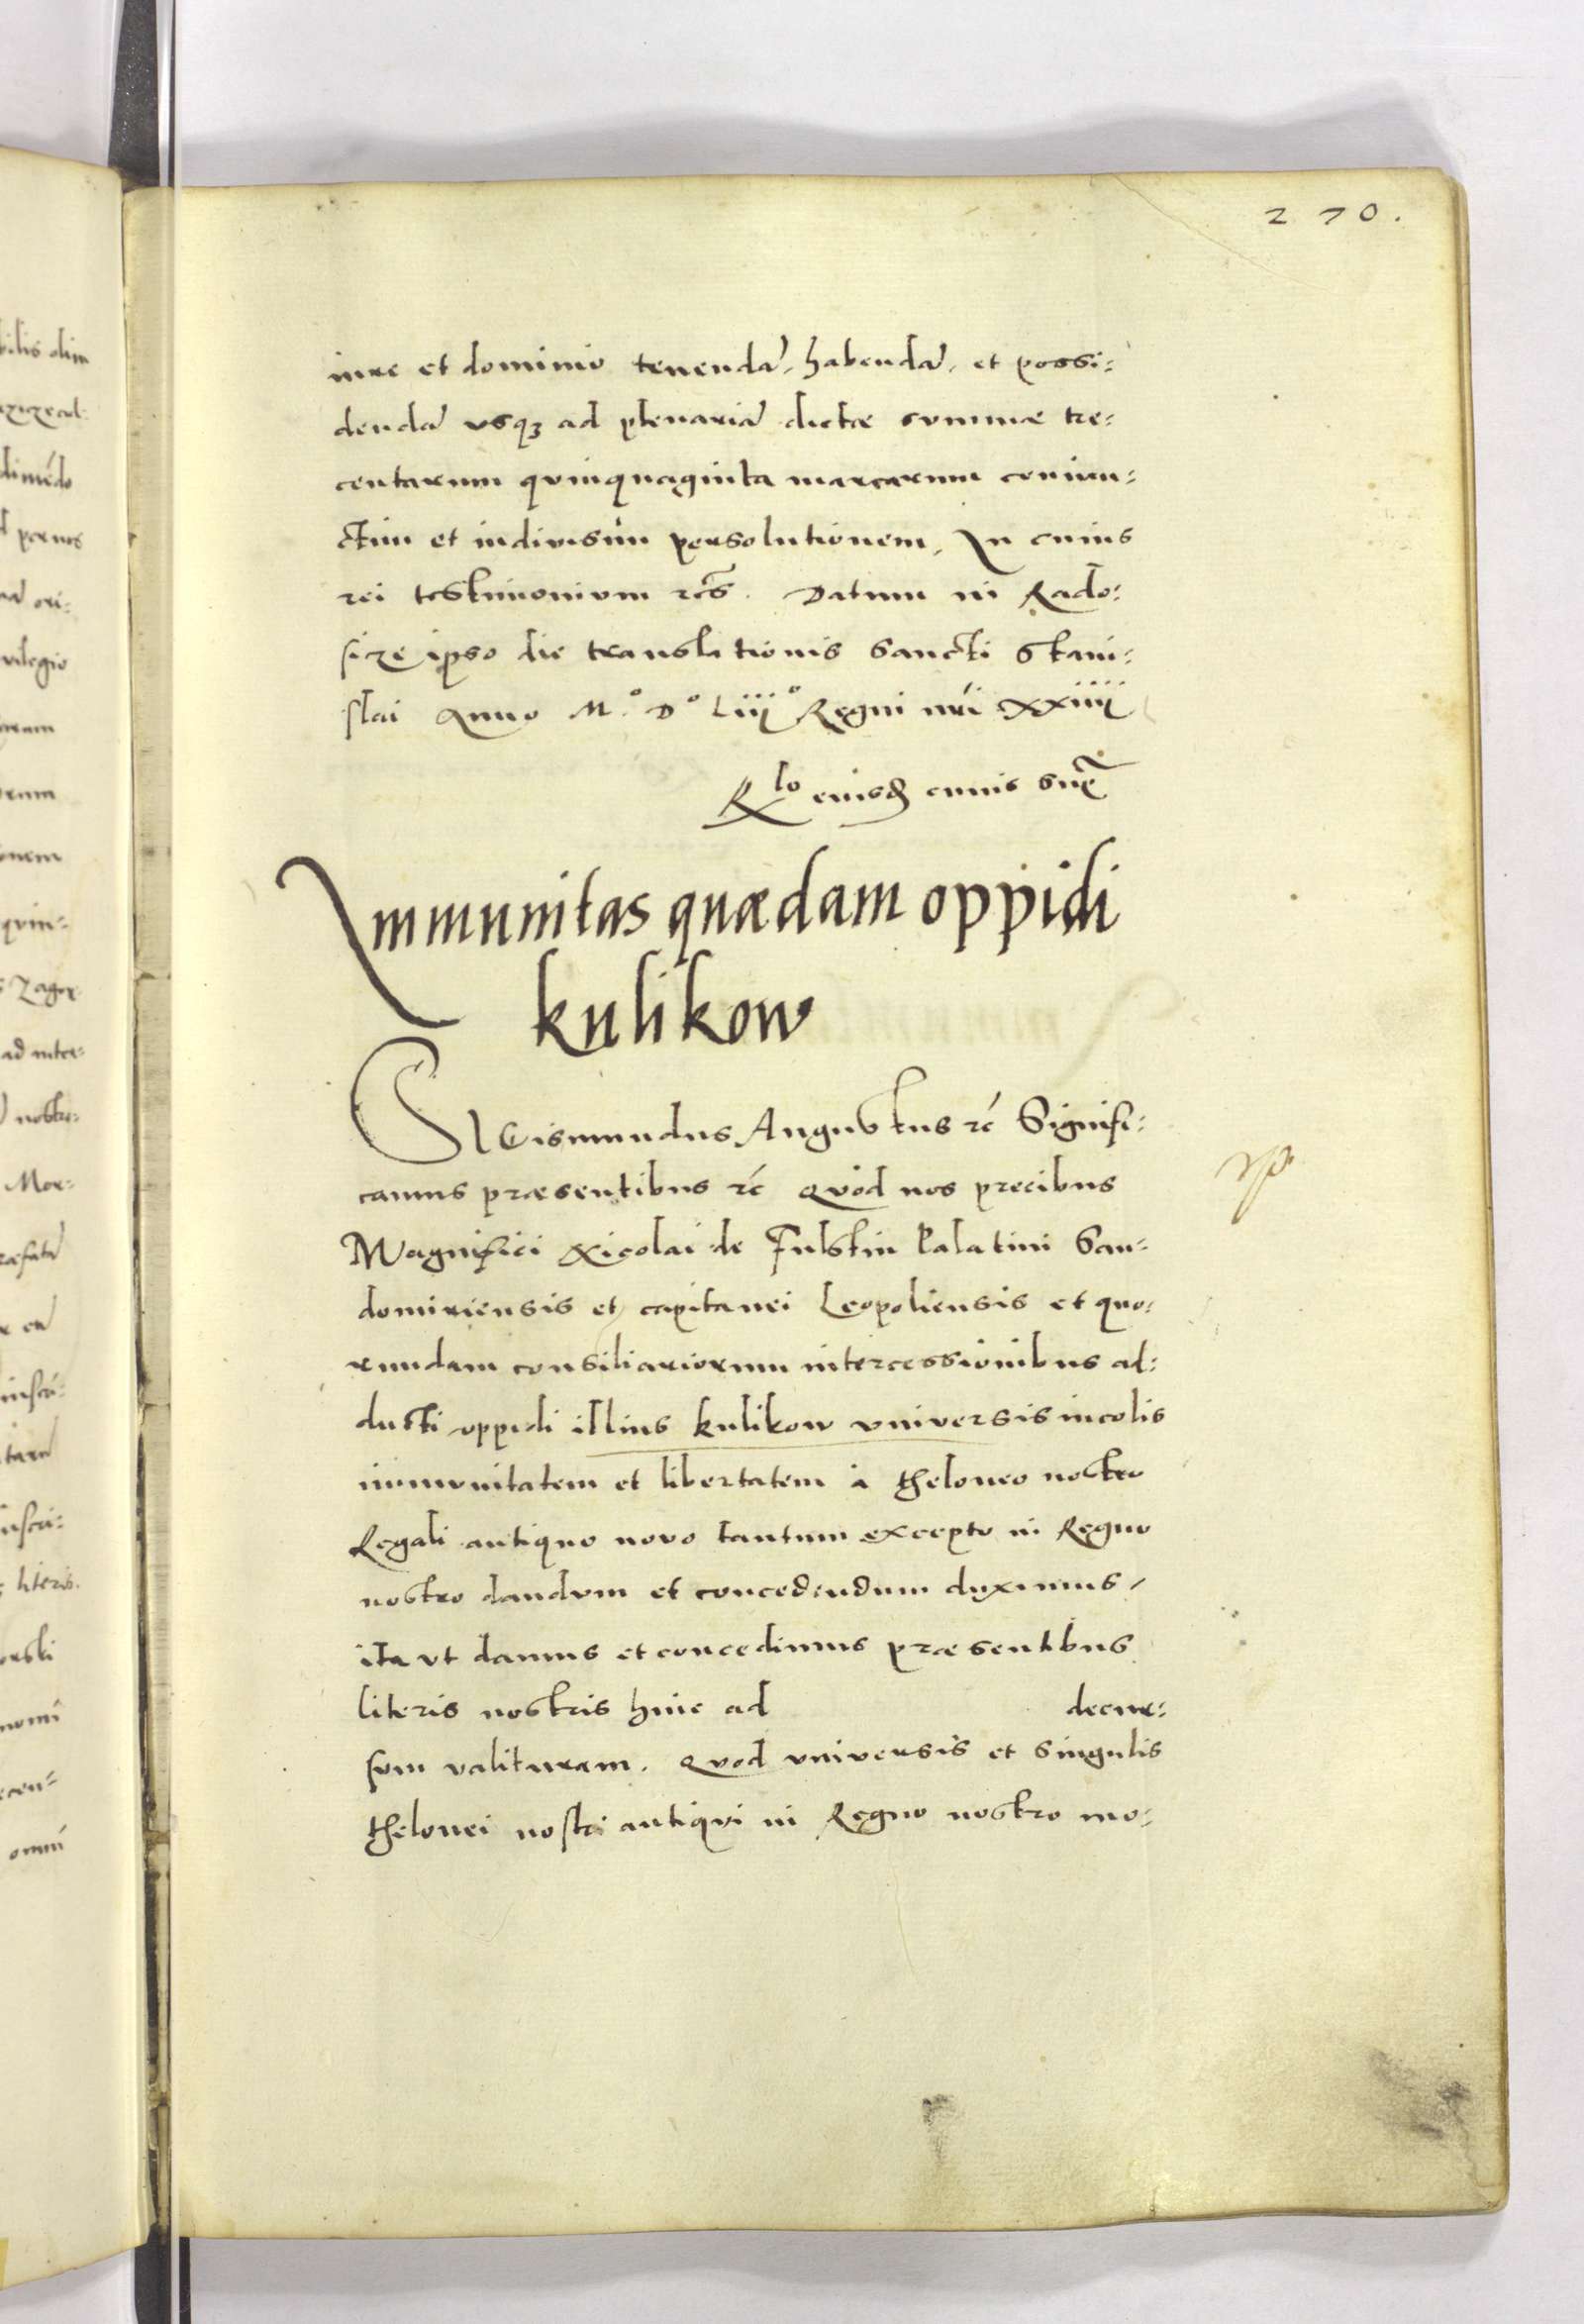 270.
iure et dominio tenendã, habendã, et possi:
dendã vsq3 ad plenariã dictæ summæ tre:
centarum quinquaginta marcarum coniun:
ctim et indiuisim persolutionem, In cuius
rei testimonium etc̃. Datum in Rado:
sicze ipso die translationis Sancti Stani:
slai Anno M.º Dº Liiijº Regni nri̇́ xxiiij
Rlo eiusd cuius supr̃
Immunitas quædam oppidi
kulikow
SIGismundus Augustus etć Signifi:
camus præsentibus etć Quod nos precibus
Magnifici Nicolai de Fulstin Palatini San:
domiriensis et capitanei Leopoliensis et quo:
rundam consiliariorum intercessionibus ad:
ducti oppidi illius kulikow vniversis incolis
immunitatem et libertatem à theloneo nostro
Regali antiquo novo tantum excepto in Regno
nostro dandum et concedendum duximus,
ita vt damus et concedimus præsentibus
literis nostris hinc ad decur:
sum valituram. Quod vniversis et singulis
thelonei nostri antiqui in Regno nostro mo:
bilis olim
dimẽdo
per nos
ori:
vilegio
onem
quin:
Zagor
ad inter:
nostro:
Mor:
literis.
omni